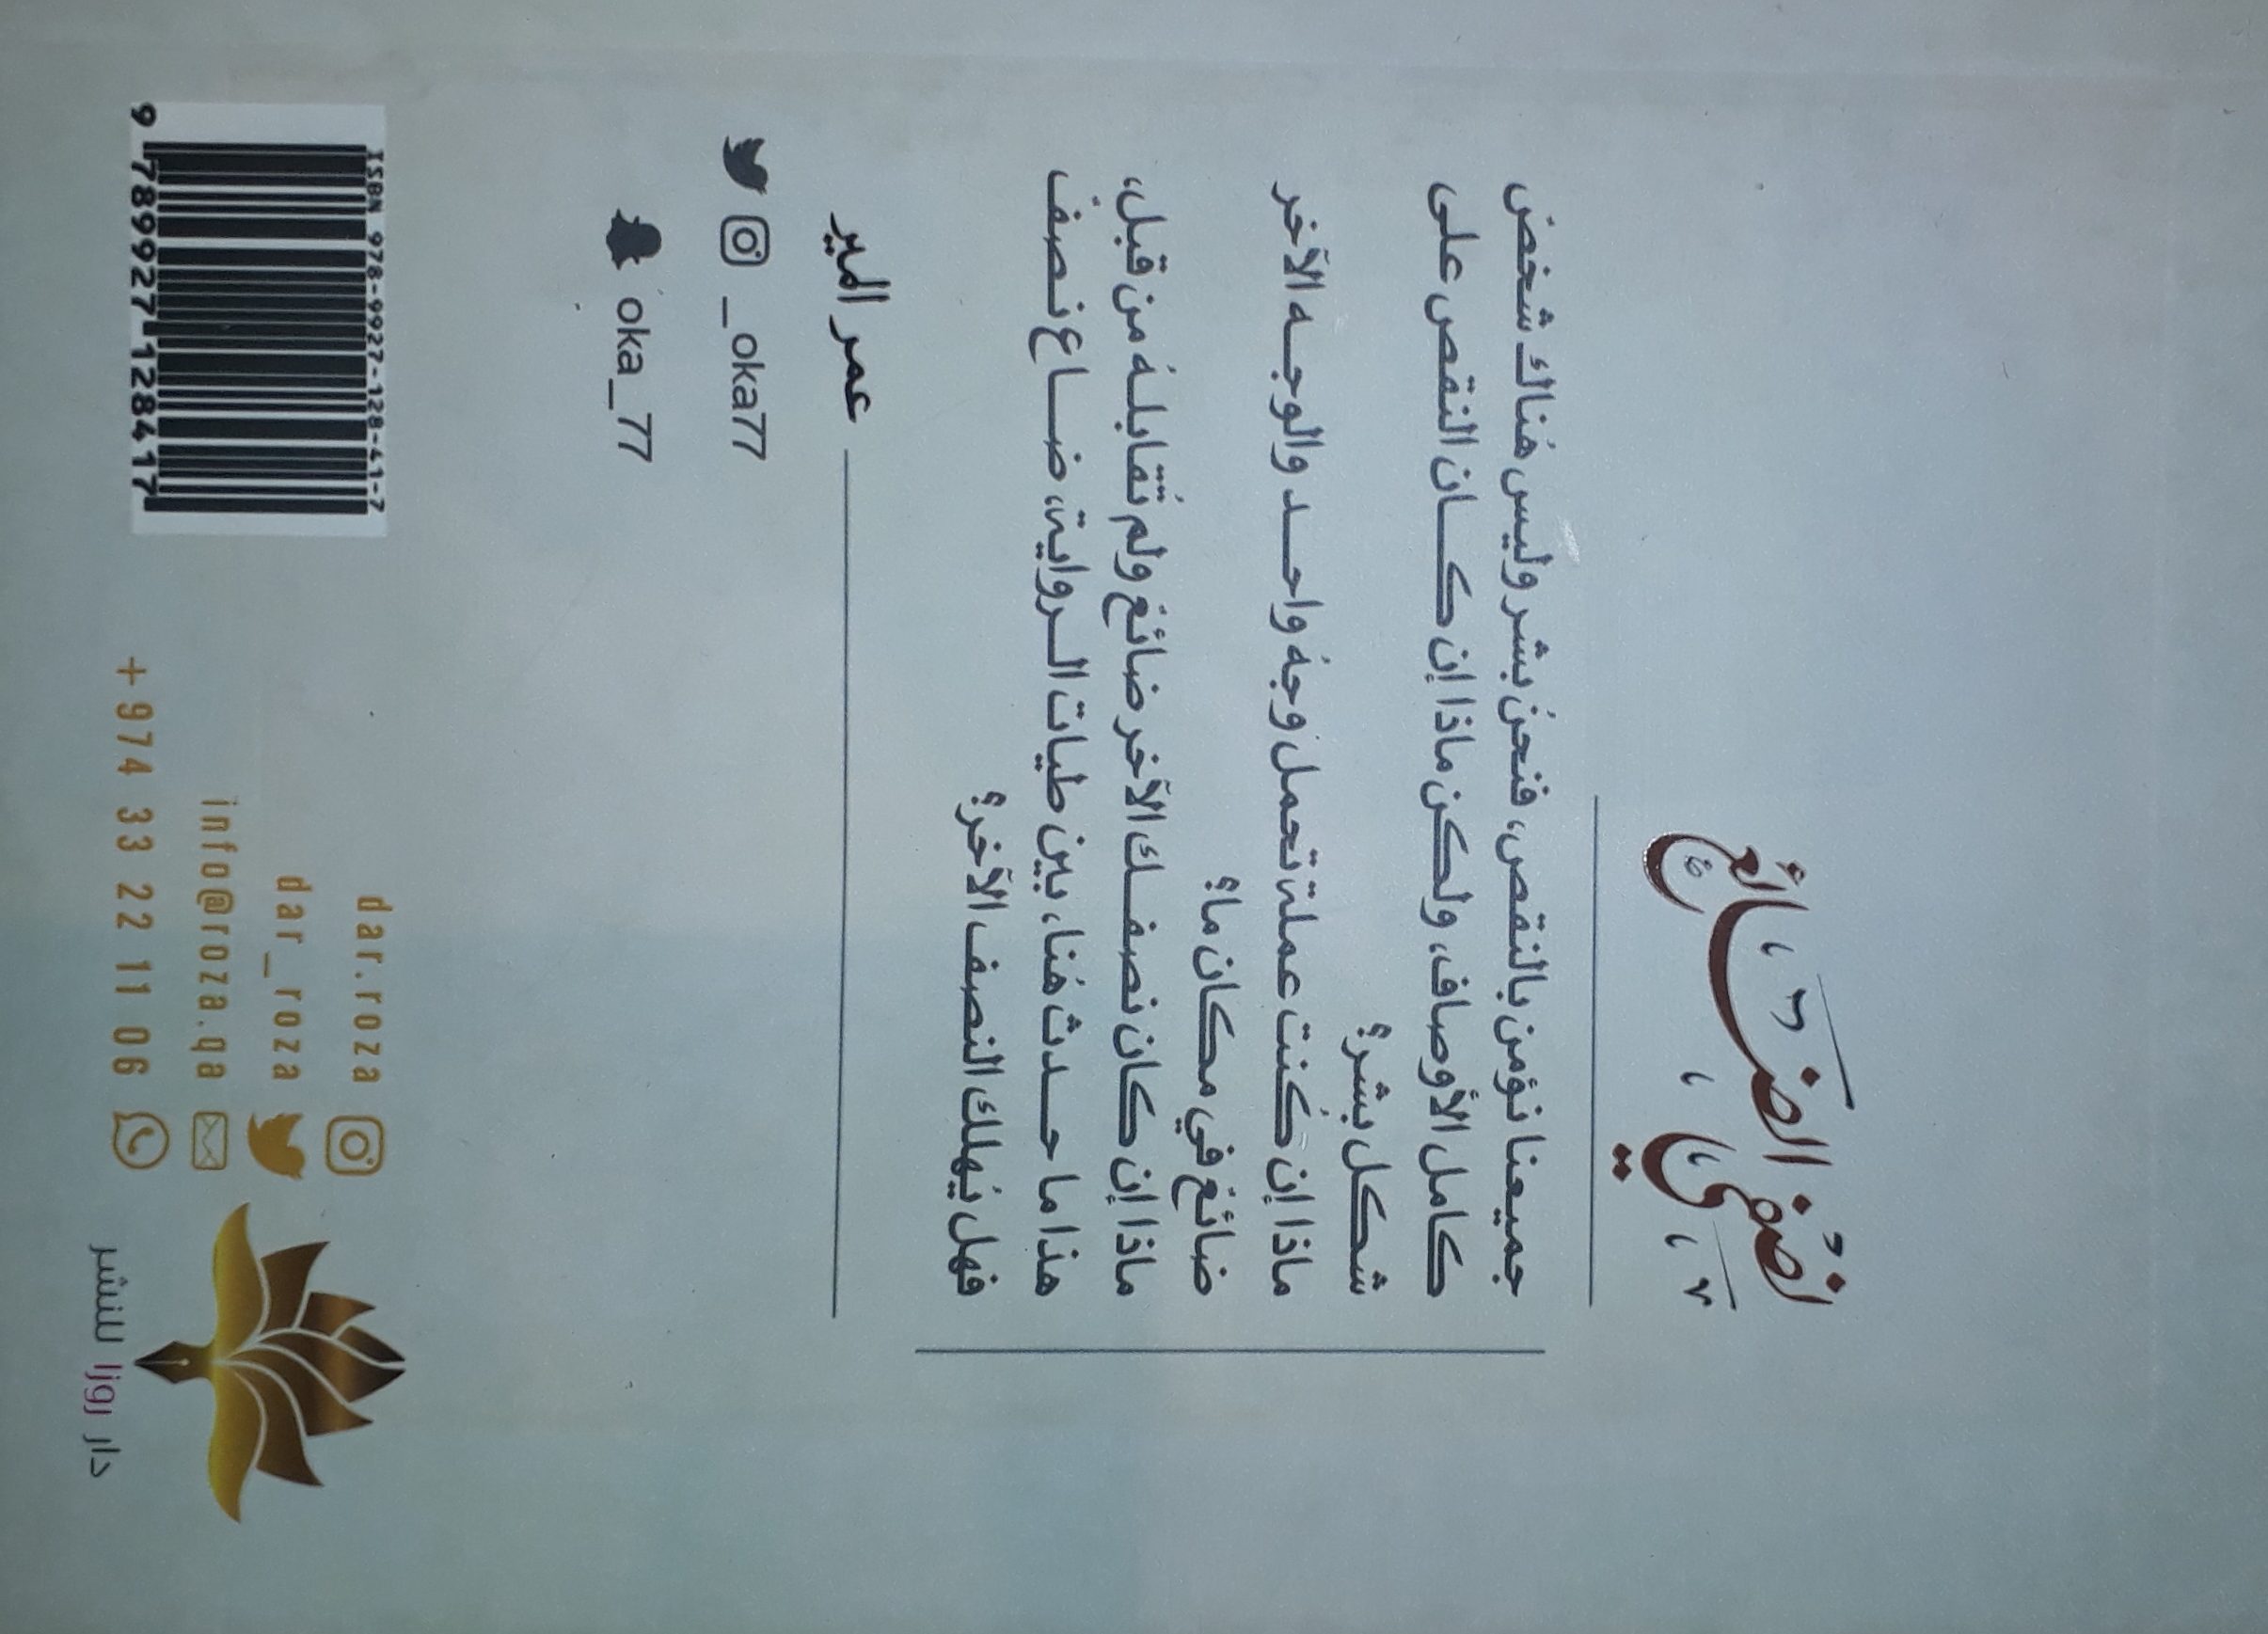 نصفي الضائع
جميعنا نؤمن بالنقص، فنحنُ بشر وليس هُناك شخص
كامل الأوصاف، ولكن ماذا إن كان النقص على
شكل بشر؟
ماذا إن كُنت عملة تحمل وجهُ واحد والوجه الآخر
ضائعُ في مكان ما؟
ماذا إن كان نصفك الآخر ضائعُ ولم تُقابلهُ من قبل،
هذا ما حدث هُنا، بين طيات الرواية، ضاع نصف
فهل يُهلك النصف الآخر؟
عمر المير
_oka77
oka_77
ISBN 978-9927-128-41-7
9 789927 128417
dar.roza
dar_roza
info@roza.qa
+974 33 22 11 06
دار روزا للنشر